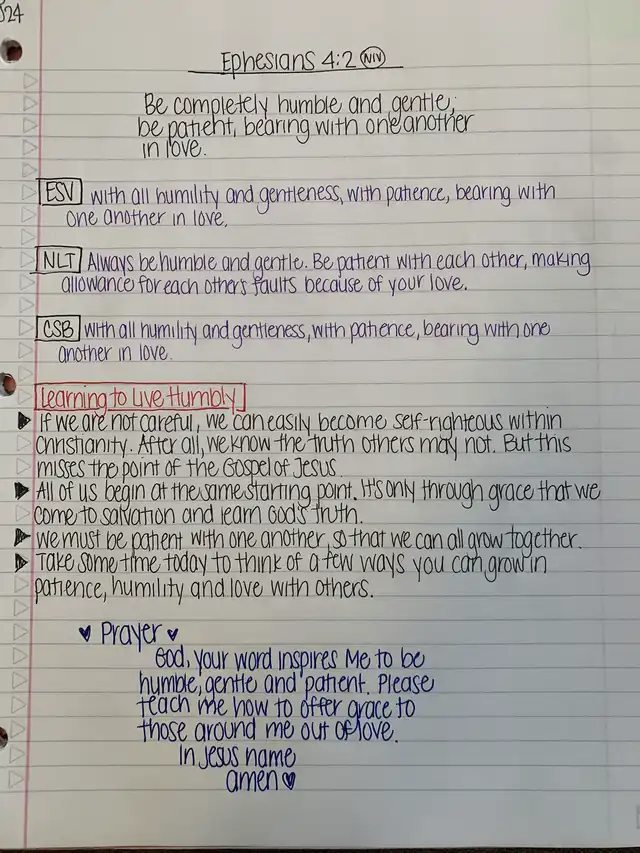 024
Ephesians 4:2 NIV
Be completely humble and gentle;
be patient, bearing with one another
in love.
ESV with all humility and gentleness, with patience, bearing with
one another in love,
NLT Always be humble and gentle. Be patient with each other, making
allowance for each other's faults because of your love.
CSB with all humility and gentleness, with patience, bearing with one
another in love.
Learning to Live Humbly
If we are not careful, we can easily become self-righteous within
Christianity. After all, we know the truth others may not. But this
misses the point of the Gospel of Jesus.
All of us begin at the same starting point. It's only through grace that we
come to salvation and learn God's truth.
We must be patient with one another, so that we can all grow together.
Take some time today to think of a few ways you can grow in
patience, humility and love with others.
Prayer
God, your word inspires Me to be
humble, gentle and patient. Please
teach me how to offer grace to
those around me out of love.
In Jesus name
amen